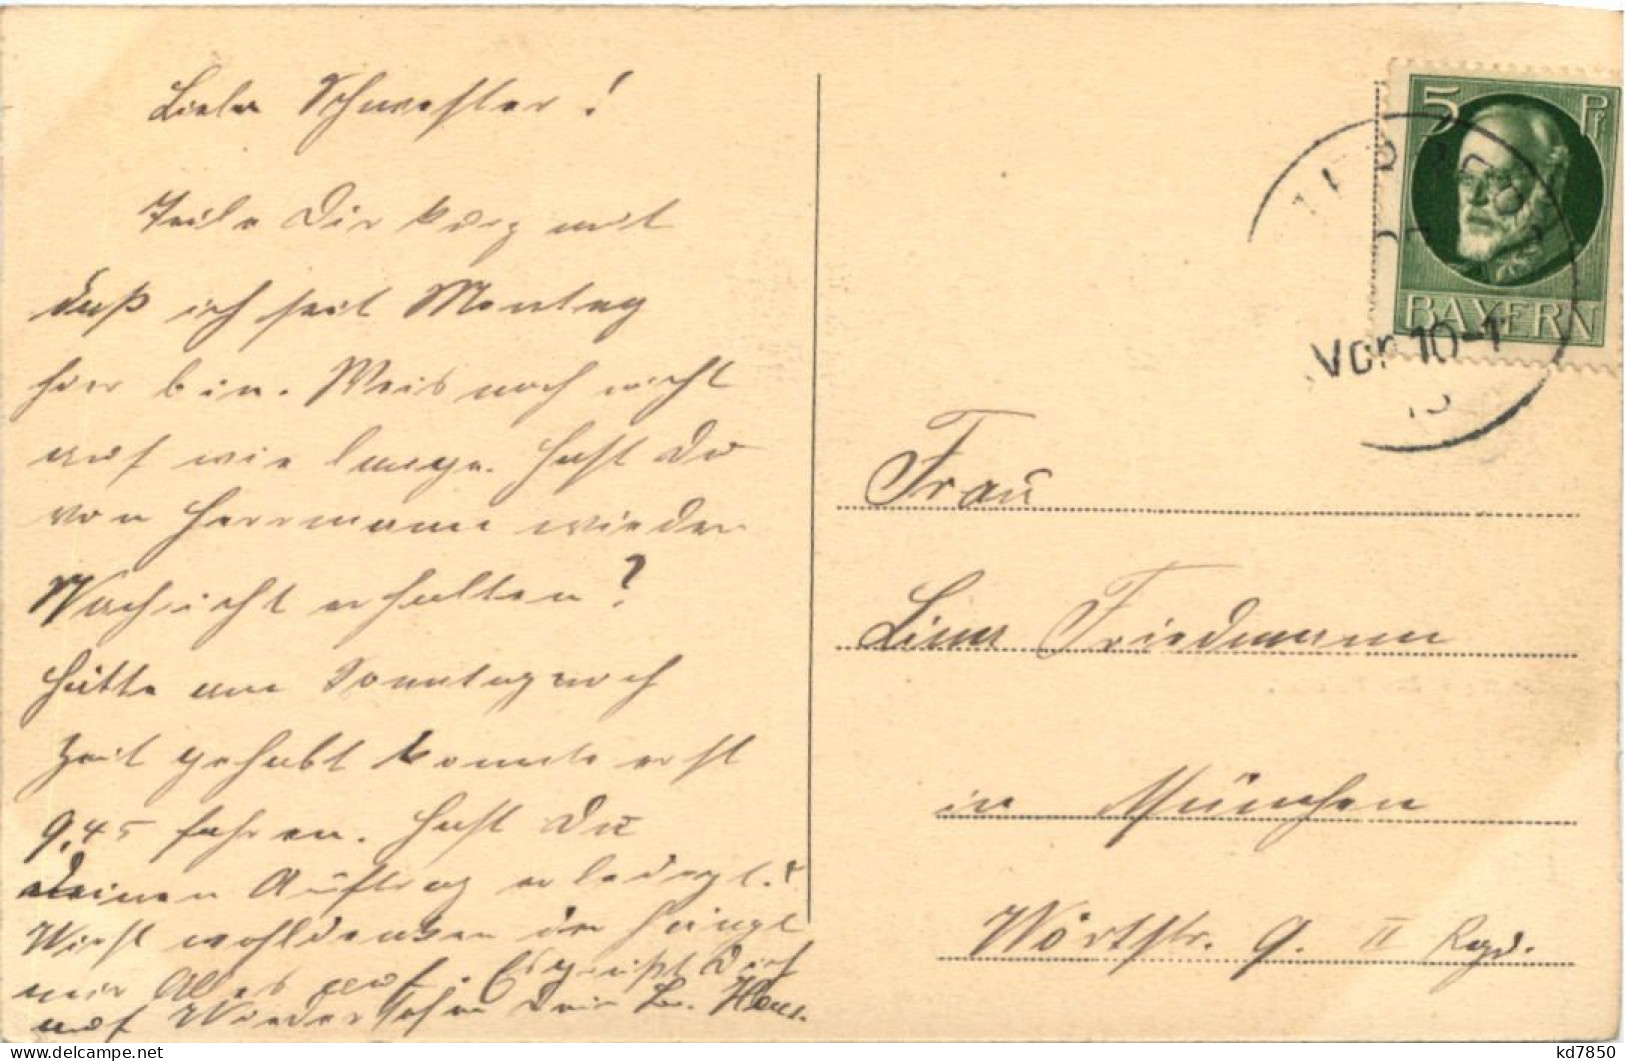 Liebe Schwester!
Teile Dir kurz mit
daß ich seit Montag
hier bin. Weis noch nicht
auf wie lange. Hast Du
von Herrmann wieder
Nachricht erhalten?
Hätte am Sonntag noch
Zeit gehabt konnte erst
9,45 fahren. Hast Du
meinen Auftrag erledigt.?
Wirst wohl denken der hängt
mir Alles auf. Es grüßt Dich
auf Wiedersehen Dein Br. Hans.
5 Pf
BAYERN
Vor 10-1
Frau
Lina Friedmann
in München
Wörthstr. 9. II Rgb.
kd7850